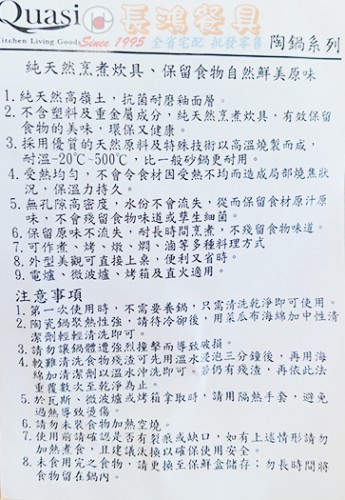 Quasi
Kitchen Living Goods
長鴻餐具
Since 1995 全省宅配 批發零售
陶鍋系列
純天然烹煮炊具、保留食物自然鮮美原味
1.純天然高嶺土,抗菌耐磨釉面層。
2.不含塑料及重金屬成分,純天然烹煮炊具,有效保留
食物的美味,環保又健康。
3.採用優質的天然原料及特殊技術以高溫燒製而成,
耐溫-20℃~500℃,比一般砂鍋更耐用。
4.受熱均勻,不會令食材因受熱不均而造成局部燒焦狀
況,保溫力持久。
5.無孔隙高密度,水份不會流失,從而保留食材原汁原
味,不會殘留食物味道或孳生細菌。
6.保留原味不流失,耐長時間烹煮,不殘留食物味道。
7.可作煮、烤、燉、燜、滷等多種料理方式
8.外型美觀可直接上桌,便利又省時。
9.電爐、微波爐、烤箱及直火適用。
注意事項
1.第一次使用時,不需要養鍋,只需清洗乾淨即可使用。
2.陶瓷鍋聚熱性強,請待冷卻後,用菜瓜布海綿加中性清
潔劑輕輕清洗即可。
3.請勿讓鍋體遭強烈撞擊而導致破損。
4.較難清洗食物殘渣可先用溫水浸泡三分鐘後,再用海
綿加清潔劑以溫水沖洗即可。若仍有殘渣,再依此法
重覆數次至乾淨為止。
5.於瓦斯、微波爐或烤箱拿取時,請用隔熱手套,避免
過熱導致燙傷。
6.請勿未裝食物加熱空燒。
7.使用前請確認是否有裂痕或缺口,如有上述情形請勿
加熱煮食,且建議汰換以確保使用安全。
8.未食用完之食物,請更換至保鮮盒儲存;勿長時間將
食物留在鍋內。